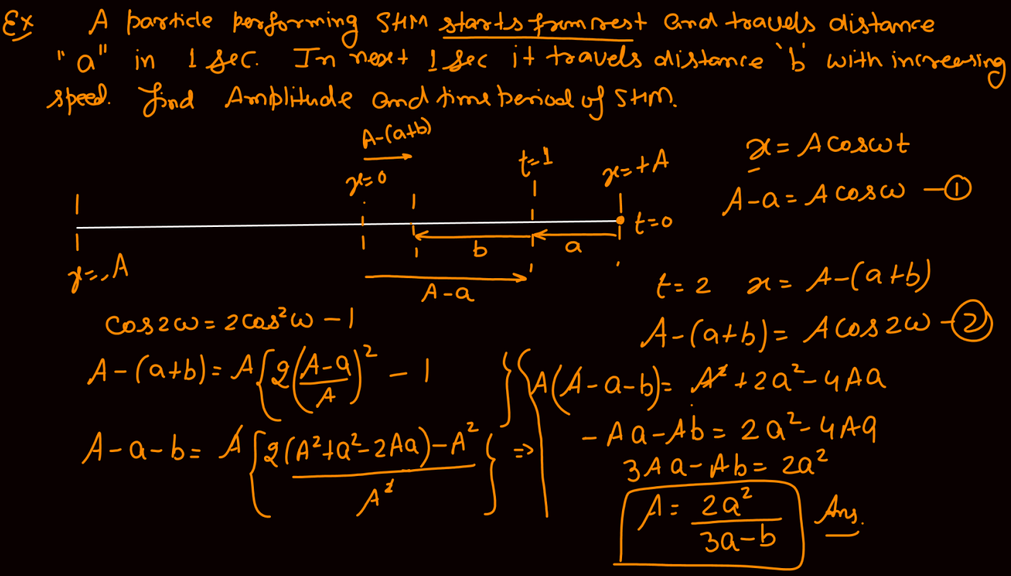 Ex A particle performing SHM starts from rest and travels distance
"a" in 1 sec. In next 1 sec it travels distance 'b' with increasing
speed. find Amplitude and time period of SHM.
A-(a+b)
x=0
t=1
x=+A
t=0
b
a
x=-A
A-a
x = A cos ωt
A-a = A cos ω —①
t=2 x = A-(a+b)
A-(a+b) = A cos 2ω —②
cos 2ω = 2cos²ω - 1
A-(a+b) = A{2((A-a)/A)² - 1}
A-a-b = A{(2(A²+a²-2Aa)-A²)/A²} ⇒
A(A-a-b) = A²+2a²-4Aa
-Aa-Ab = 2a²-4Aa
3Aa-Ab = 2a²
A = 2a²/(3a-b) Ans.